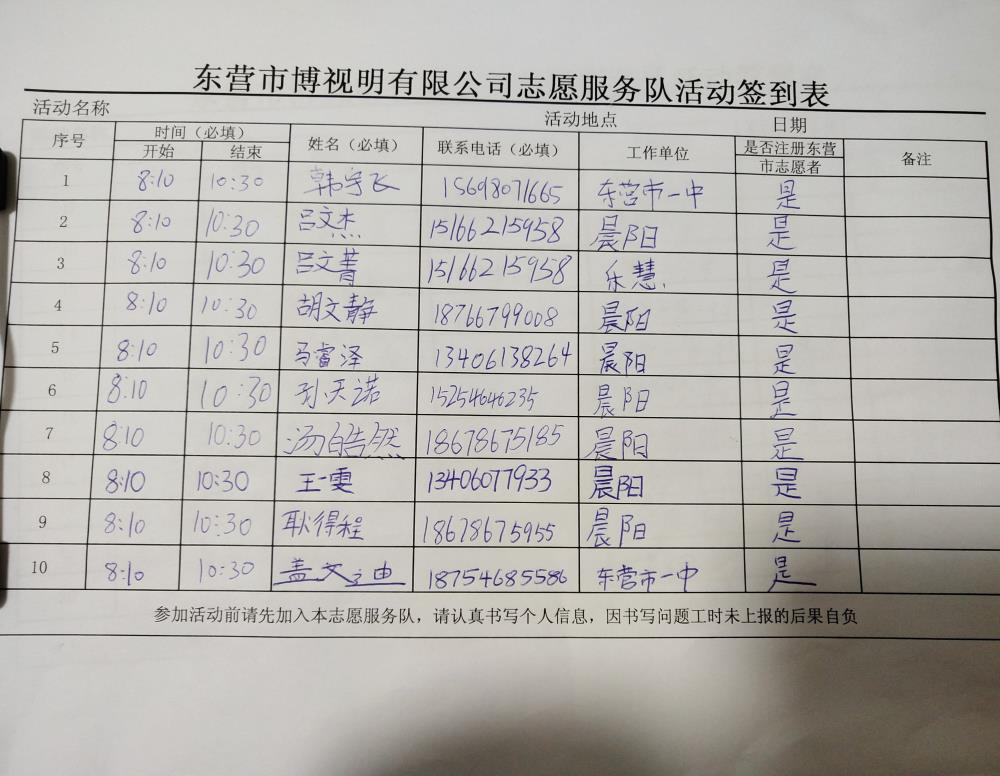 东营市博视明有限公司志愿服务队活动签到表
活动名称 活动地点 日期
序号 时间（必填） 姓名（必填） 联系电话（必填） 工作单位 是否注册东营市志愿者 备注
开始 结束
1 8:10 10:30 韩宇飞 15698071665 东营市一中 是
2 8:10 10:30 吕文杰 15166215958 晨阳 是
3 8:10 10:30 吕文菁 15166215958 乐慧. 是
4 8:10 10:30 胡文静 18766799008 晨阳 是
5 8:10 10:30 马富泽 13406138264 晨阳 是
6 8:10 10:30 孙天诺 15254646235 晨阳 是
7 8:10 10:30 汤皓然 18678675185 晨阳 是
8 8:10 10:30 王一雯 13406077933 晨阳 是
9 8:10 10:30 耿得程 18678675955 晨阳 是
10 8:10 10:30 盖文之由 18754685586 东营市一中 是
参加活动前请先加入本志愿服务队，请认真书写个人信息，因书写问题工时未上报的后果自负